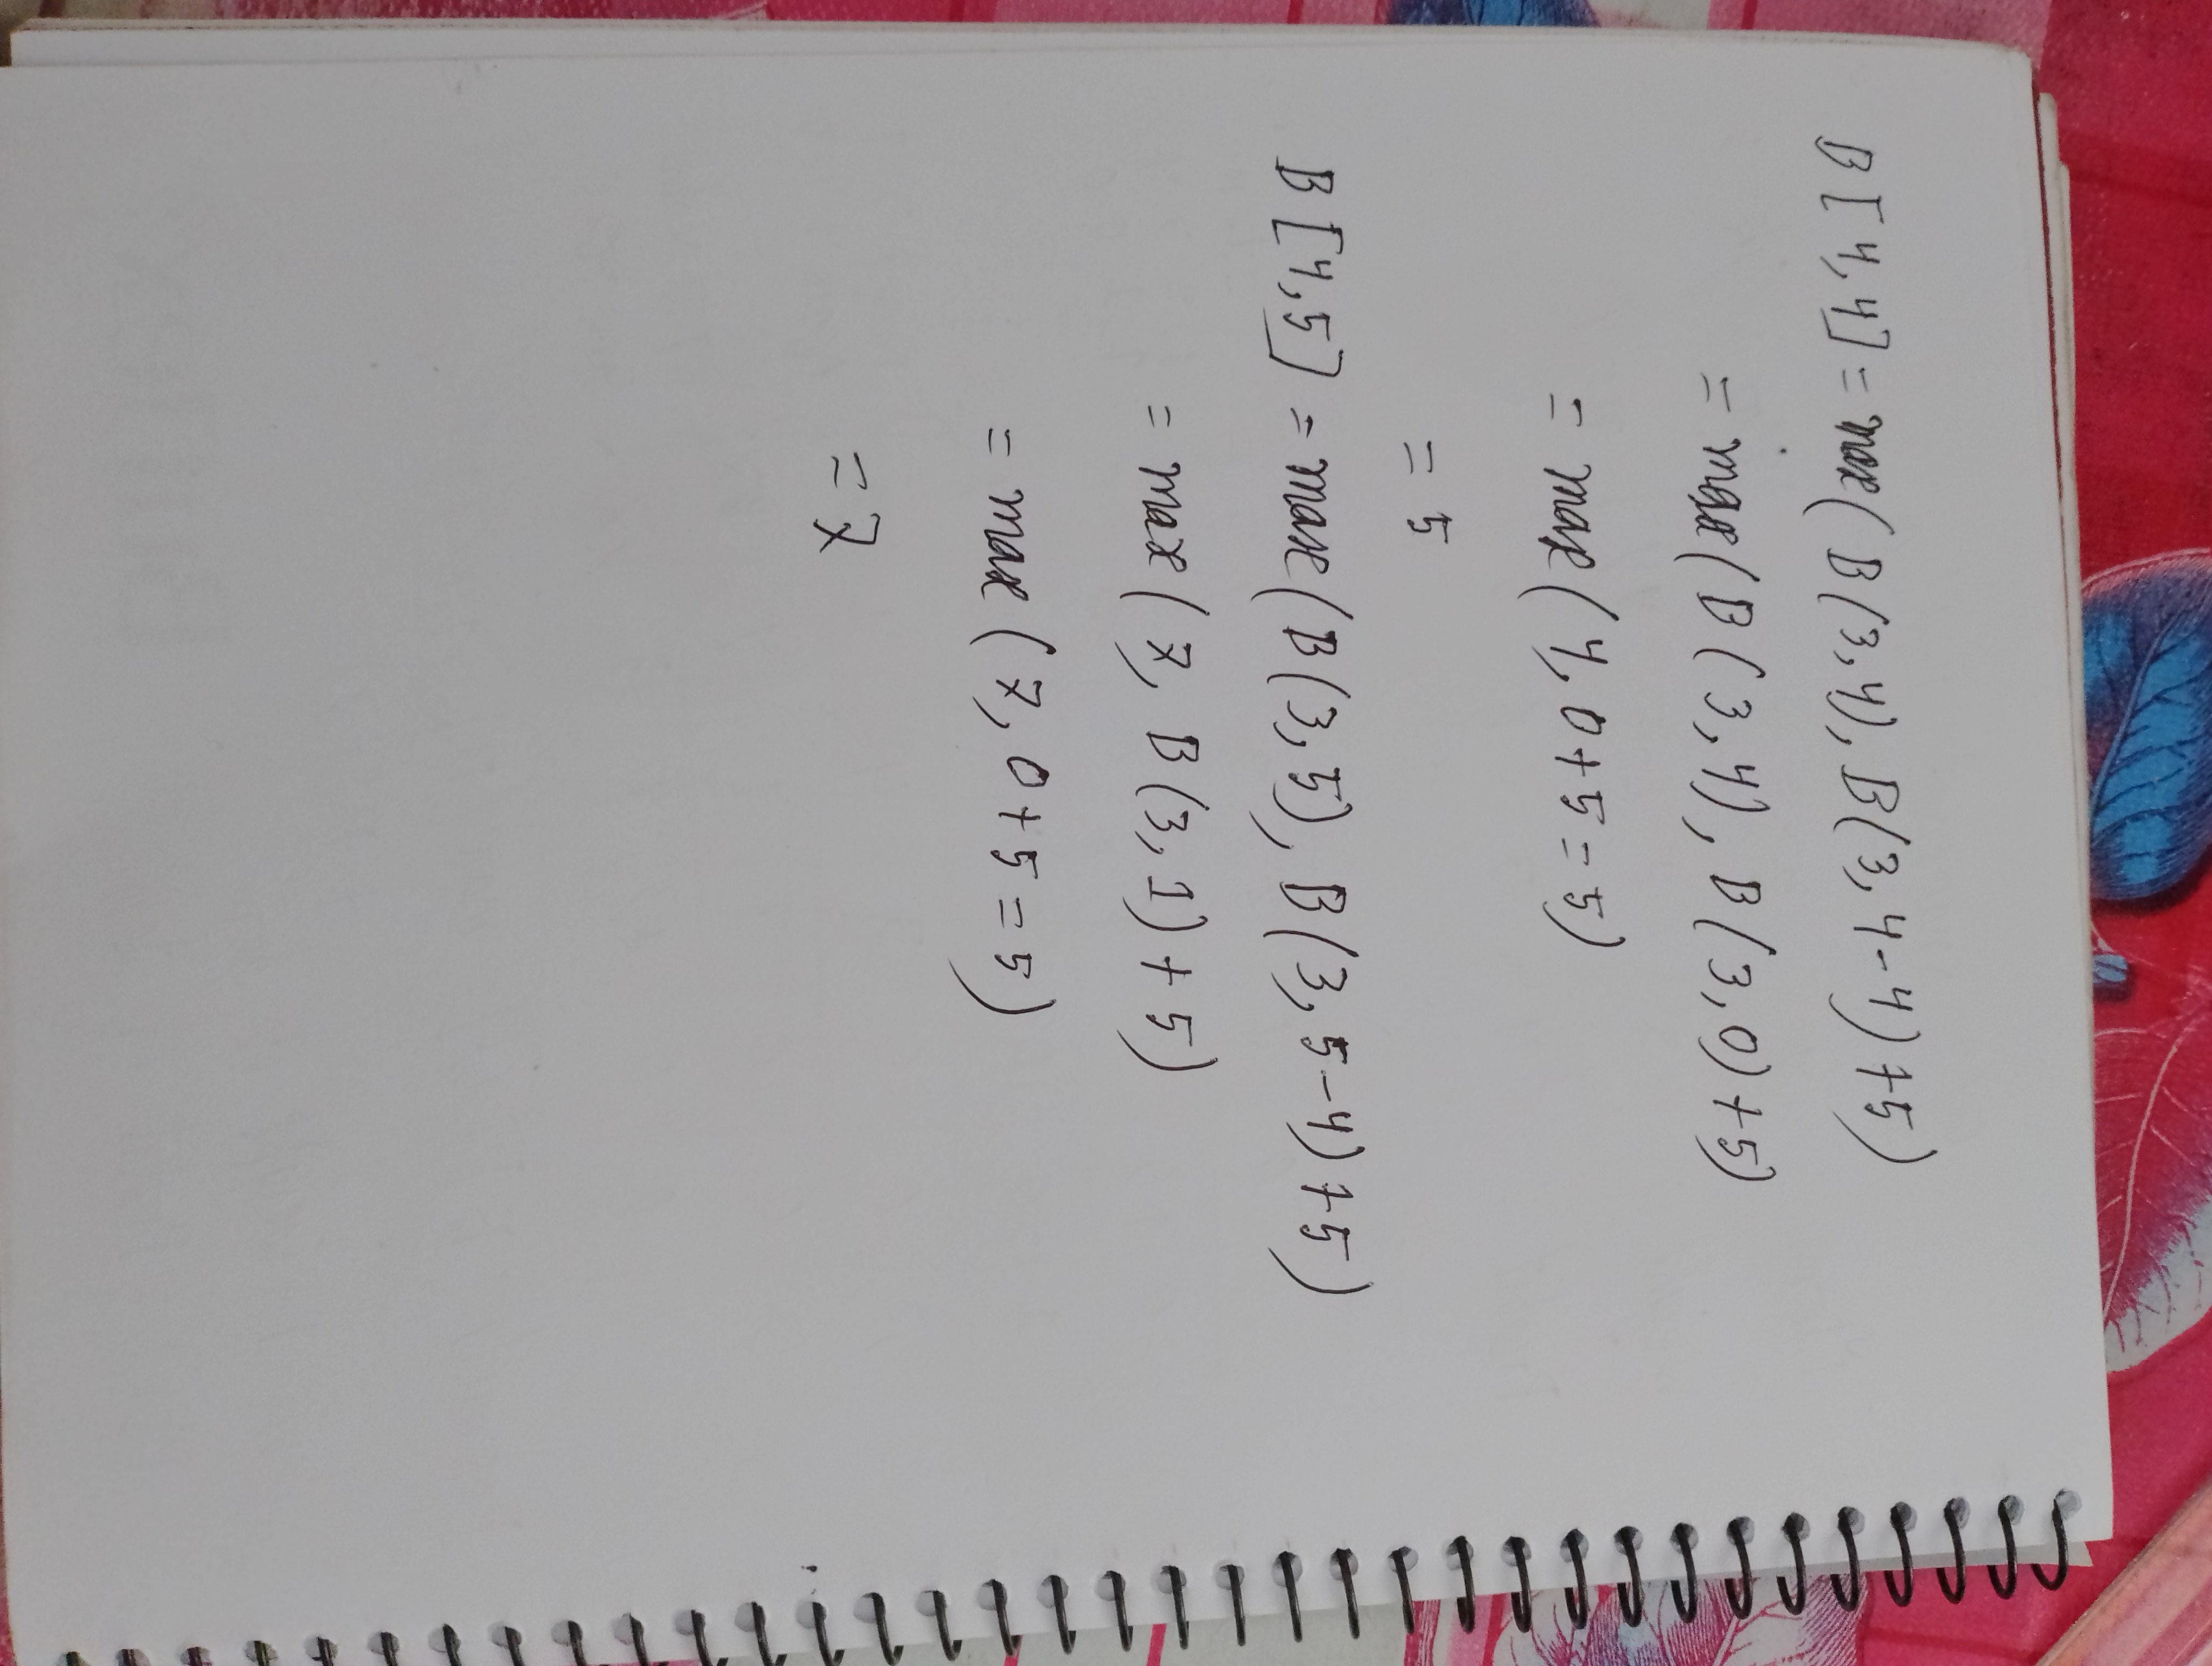 B[4,4] = max(B(3,4), B(3,4-4)+5)
= max(B(3,4), B(3,0)+5)
= max(4, 0+5=5)
= 5
B[4,5] = max(B(3,5), B(3,5-4)+5)
= max(7, B(3,1)+5)
= max(7, 0+5=5)
= 7